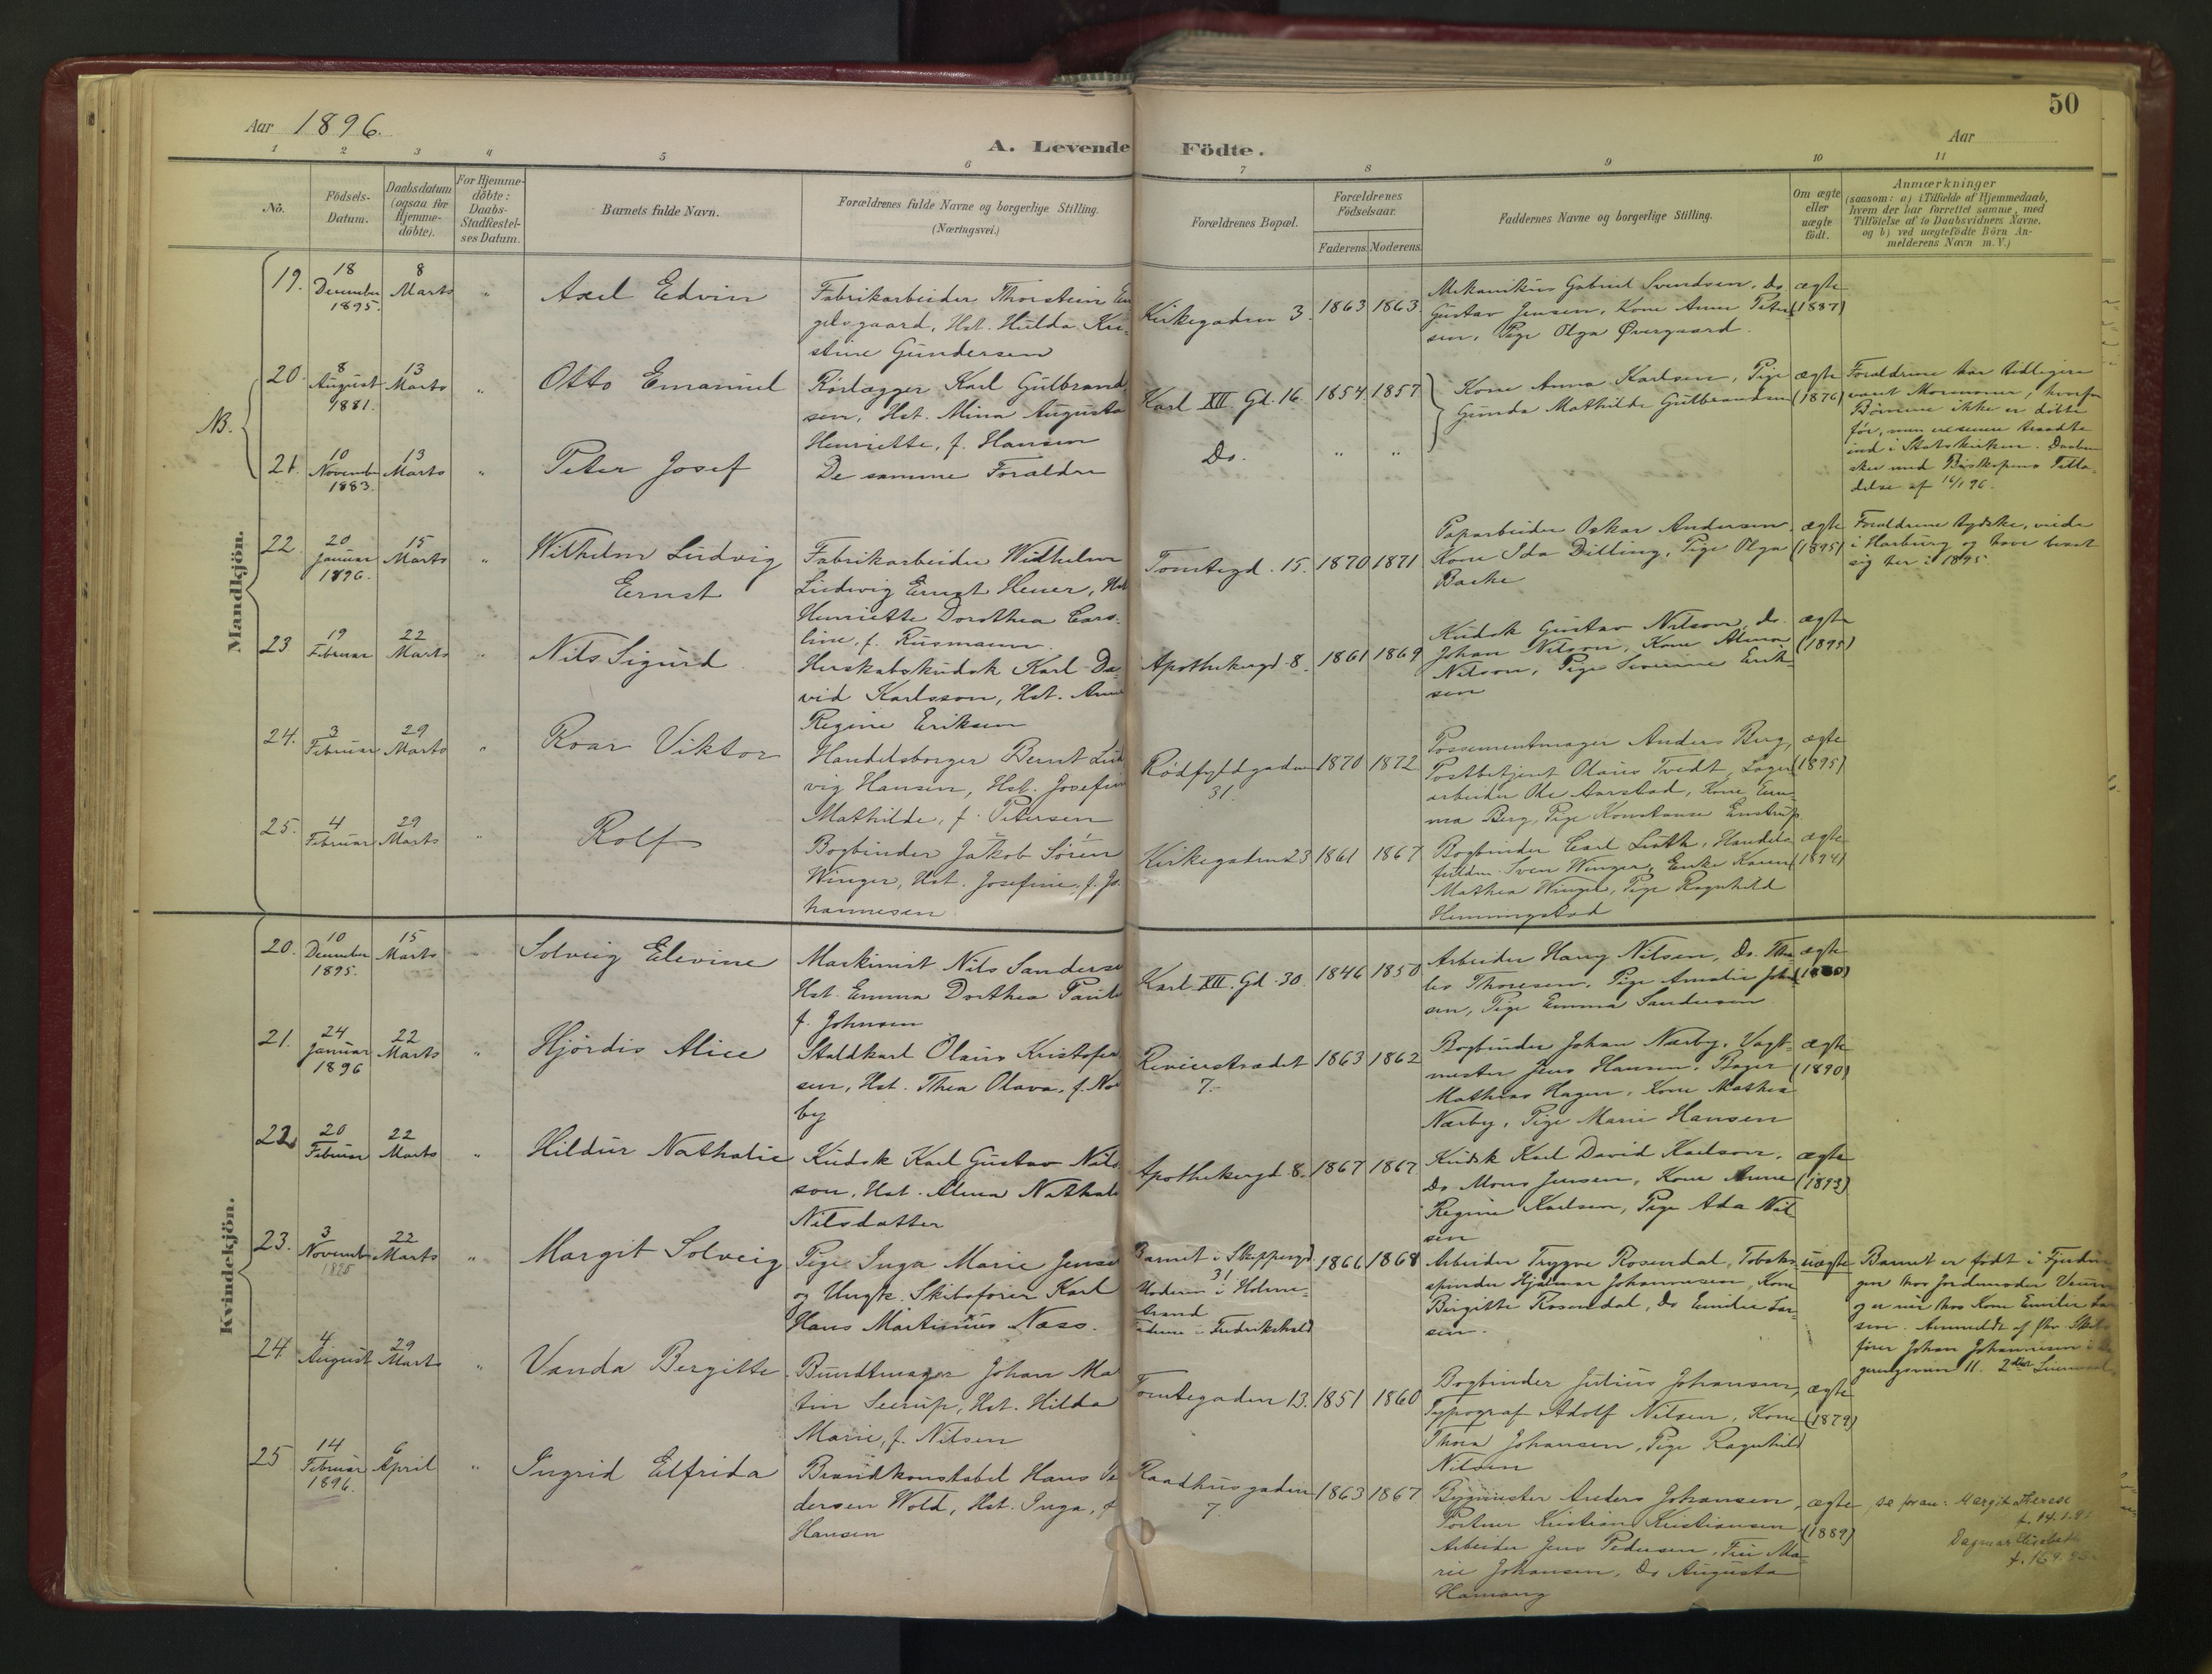 50
Aar 1896.
Aar
A. Levende Födte.
1 2 3 4 5 6 7 8 9 10 11
Nö.
Födsels-
Datum.
Daabsdatum
(ogsaa for
Hjemme-
döbte).
For Hjemme-
döbte:
Daabs-
Stadfæstel-
ses Datum.
Barnets fulde Navn.
Forældrenes fulde Navne og borgerlige Stilling.
(Næringsvei.)
Forældrenes Bopæl.
Forældrenes
Födselsaar.
Faderens. Moderens.
Faddernes Navne og borgerlige Stilling.
Om ægte
eller
uægte
födt.
Anmærkninger
(saasom: a) i Tilfælde af Hjemmedaab,
hvem der har forrettet samme, med
Tilföielse af to Daabsvidners Navne.
og b) ved uægtefödte Börn An-
melderens Navn m. V.)
Mandkjön.
19.
18
December
1895.
8
Marts
"
Axel Edvin
Fabrikarbeider Thorstein En
gelsgaard, Hst. Hulda Kri-
stine Gundersen
Kirkegaden 3.
1863
1863
Mekanikus Gabriel Svendsen, Do
Gustav Jensen, Kone Anne Peter
sen, Pige Olga Øvergaard.
ægte
(1887)
NB.
20.
8
August
1881.
13
Marts
"
Otto Emanuel
Rørlægger Karl Gulbrand
sen, Hst. Mina Augusta
Henriette, f. Hansen
Karl XII Gd. 16.
1854
1857
Kone Anna Karlsen, Pige
Gunda Mathilde Gulbrandsen
ægte
(1876)
Forældrene har tidligere
været Mormoner, hvorfor
Børnene ikke er døbte
før, men ere senere traadte
ind i Statskirken. Daaben
sker med Biskopens Tilla-
delse af 16/1 96.
21.
10
Novembr
1883.
13
Marts
"
Peter Josef
De samme Forældre
Do.
"
"
22.
20
Januar
1896.
15
Marts
"
Wilhelm Ludvig
Ernst
Fabrikarbeider Wilhelm
Ludwig Ernst Heuer, Hst
Henriette Dorothea Caro-
line, f. Rusmann.
Tomtegd. 15.
1870
1871
Paparbeider Oskar Andersen,
Kone Ida Dilling, Pige Olga
Bache
ægte
(1895)
Forældrene tydske, viede
i Harburg og have bosat
sig her i 1895.
23
19
Februar
22
Marts
"
Nils Sigurd
Herskabskudsk Karl Da-
vid Karlsson, Hst. Anne
Regine Eriksen
Apothekergd. 8.
1861
1869
Kudsk Gustav Nilson, do.
Johan Nilson, Kone Alma
Nilson, Pige Severine Erik-
sen
ægte
(1895)
24.
3
Februar
29
Marts
"
Roar Viktor
Handelsborger Bernt Lud
vig Hansen, Hst. Josefine
Mathilde, f. Petersen
Rødfyldgaden
31.
1870
1872
Possementmager Anders Berg,
Postbetjent Olaus Tvedt, Lager
arbeider Ole Aarstad, Kone Em-
ma Berg, Pige Konstanse Enstrup
ægte
(1895)
25.
4
Februar
29
Marts
"
Rolf
Bogbinder Jakob Sören
Winger, Hst. Josefine, f. Jo-
hannesen
Kirkegaden 23
1861
1867
Bogbinder Carl Lüth, Handels
fuldm. Sven Winger, Enke Karen
Mathea Winger, Pige Ragnhild
Henningstad
ægte
(1894)
Kvindekjön.
20.
10
December
1895.
15
Marts
"
Solveig Elevine
Maskinist Nils Sanderse
Hst. Emma Dorthea Paul
f. Johnsen
Karl XII. Gd. 30.
1846
1850
Arbeider Harry Nilsen, Do.
Thoresen, Pige Amalie Joha
sen, Pige Emma Sandersen
ægte
21.
24
Januar
1896
22
Marts
"
Hjördis Alice
Staldkarl Olaus Kristofer
sen, Hst. Thea Olava, f. Nor
by
Reviersstrædet
7.
1863
1862
Bogbinder Johan Nærby, Vagt-
mester Jens Hansen, Bager
Mathias Hagen, Kone Mathea
Nærby, Pige Marie Hansen
ægte
(1890)
22.
20
Februar
22
Marts
"
Hildur Nathalie
Kudsk Karl Gustav Nils
son, Hst. Alma Nathali
Nilsdatter
Apothekergd. 8.
1867
1867
Kudsk Karl David Karlson,
Do Mons Jensen, Kone Anne
Regine Karlsen, Pige Ada Nil
sen
ægte
(1893)
23.
3
Novembr
1895
22
Marts
"
Margit Solveig
Pige Inga Marie Jense
og Ungk. Skibsfører Karl
Hans Martinius Næss.
Barnet i Skippergd
31.
Moderen i Holme-
strand
Fredrikshald
1866
1868
Arbeider Trygve Rosendal, Tobaks-
spinder Hjalmar Johannesen, Kone
Birgitte Rosendal, Do Emilie Lar-
sen.
uægte
Barnet er født i Fjerdin
gen hos Jordemoder
og er nu hos Kone Emilie La
sen. Anmeldt af
fører Johan Johannesen
11. 2det
24.
4
August
29
Marts
"
Vanda Bergitte
Bundtmager Johan Ma
tin Seerup, Hst. Hilda
Marie, f. Nilsen
Tomtegaden 13.
1851
1860
Bogbinder Julius Johansen,
Typograf Adolf Nilsen, Kone
Thora Johansen, Pige Ragnhild
Nilsen
ægte
(1879)
25
14
Februar
1896.
6
April
"
Ingrid Elfrida
Brandkonstabel Hans Pe
dersen Wold, Hst. Inga, f
Hansen
Raadhusgaden
7.
1863
1867
Bygmester Anders Johansen,
Portner Kristian Kristiansen,
Arbeider Jens Pedersen, Fru Ma-
rie Johansen, Do Augusta
Hamang
ægte
(1889)
se foran: Margit Therese
f. 14.1.9
Dagmar Elisabeth